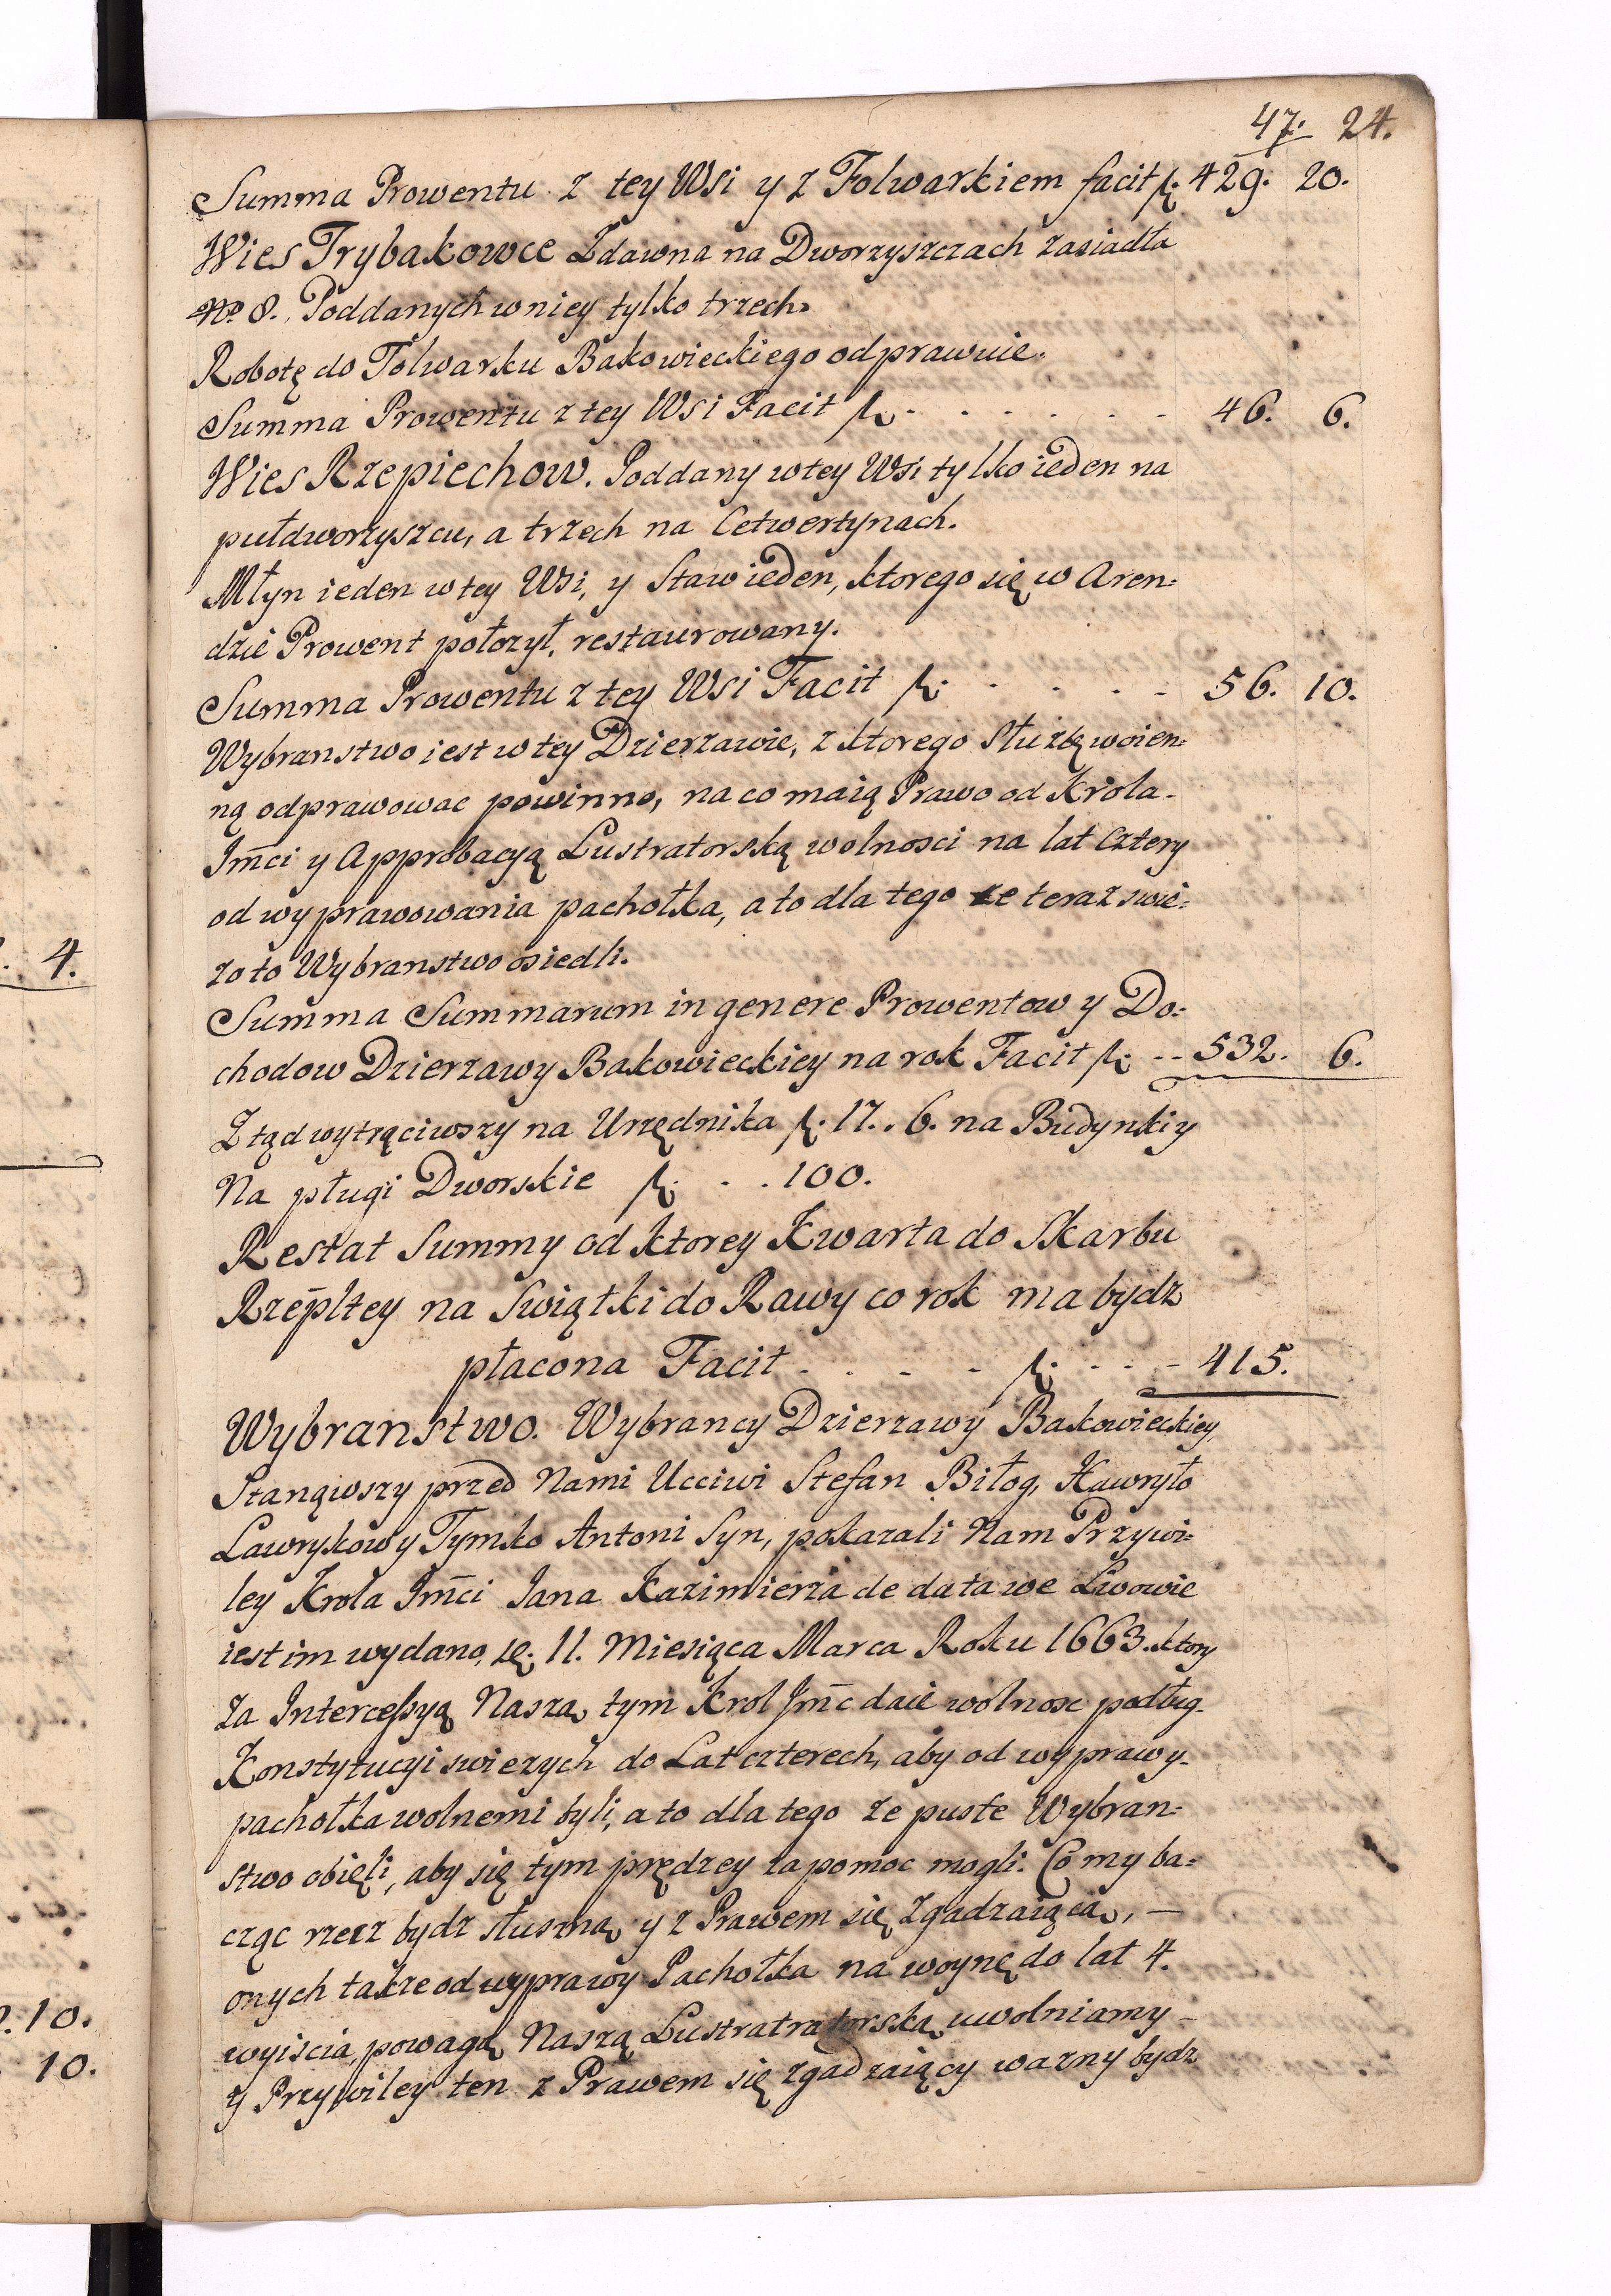 47. 24.
Summa Prowentu z tey Wsi y z Folwarkiem facit f. 429. 20.
Wies Trybakowce Zdawna na Dworzyszczach zasiadła
No 8. Poddanych w niey tylko trzech.
Robotę do Folwarku Bakowieckiego odprawuie.
Summa Prowentu z tey Wsi Facit f. - - - - - - 46. 6.
Wies Rzepiechow. Poddany w tey Wsi tylko ieden na
pułdworzyszcu, a trzech na Cetwertynach.
Młyn ieden w tey Wsi, y Staw ieden, ktorego się w Aren=
dzie Prowent połozył, restaurowany.
Summa Prowentu z tey Wsi Facit f. - - - - 56. 10.
Wybranstwo iest w tey Dzierzawie, z ktorego Służbę woien=
ną odprawowac powinno, na co maią Prawo od Krola-
Jm̄ci y Approbacyą Lustratorską wolnosci na lat Cztery
od wyprawowania pachołka, a to dla tego ze teraz swie=
zo to Wybranstwo osiedli.
Summa Summarum in genere Prowentow y Do=
chodow Dzierzawy Bakowieckiey na rok Facit f. -- 532. 6.
Ztąd wytrąciwszy na Urzędnika f. 17. . 6. na Budynki y
Na pługi Dworskie f. - . . 100.
Restat Summy od ktorey Kwarta do Skarbu
Rzēpltey na Swiątki do Rawy co rok ma bydz
płacona Facit - . - - f. - - - 415.
Wybranstwo. Wybrancy Dzierzawy Bakowieckiey,
Stanąwszy przed Nami Ucciwi Stefan Biłog, Hawryło
Lawrykow y Tymko Antoni Syn, pokazali Nam Przywi=
ley Krola Jm̄ci Jana Kazimierza de data we Lwowie
iest im wydano, 11. Miesiąca Marca Roku 1663. ktory
za Intercessyą Naszą, tym Krol Jm̄c daie wolnosc podług-
Konstytucyi swiezych do Lat czterech, aby od wyprawy-
pachołka wolnemi byli, a to dla tego ze puste Wybran=
stwo obięli, aby się tym prędzey zapomoc mogli. Co my ba=
cząc rzecz bydz słuszną y z Prawem się zgadzaiącą, —
onych takze od wyprawy Pachołka na woynę do lat 4.
wyiscia, powagą Naszą Lustratratorską uwolniamy -
y Przywiley ten z Prawem się zgadzaiący wazny bydz
4.
10.
10.